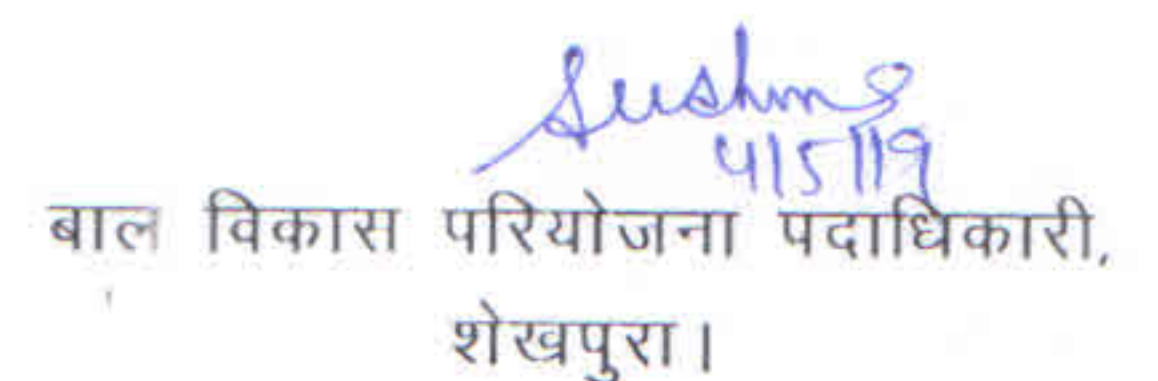 Sushma
4/5/19
बाल विकास परियोजना पदाधिकारी,
शेखपुरा।